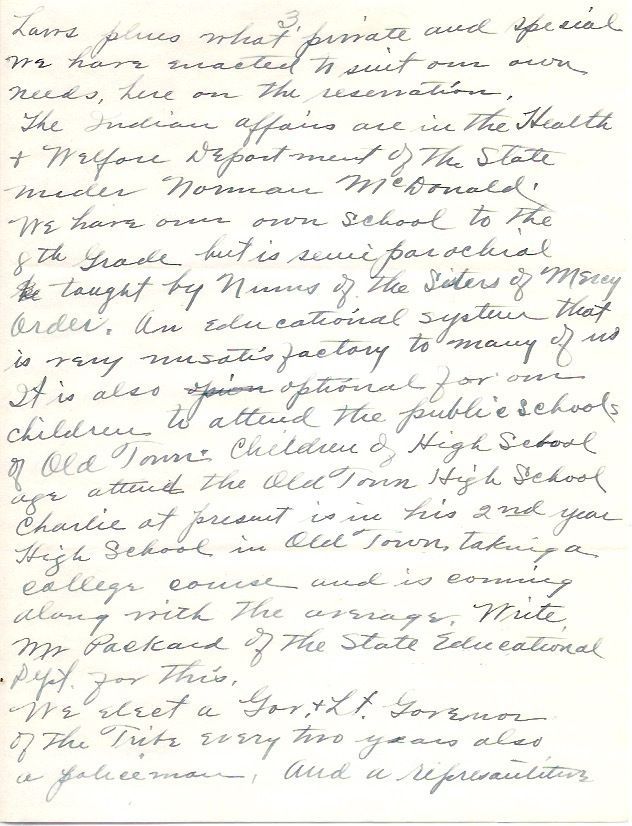 3
Laws plus what private and special
we have enacted to suit our own
needs, here on the reservation.
The Indian affairs are in the Health
+ Welfare Department of the State
under Norman McDonald.
We have our own school to the
8th Grade but is semi parochial
taught by Nuns of the Sisters of Mercy
Order. An educational system that
is very unsatisfactory to many of us
It is also opion optional for our
children to attend the public schools
of Old Town. Children of High School
age attend the Old Town High School
Charlie at present is in his 2nd year
High School in Old Town, taking a
college course and is coming
along with the average. Write
Mr Packard of the State Educational
Dept. for this.
We elect a Gov. + Lt. Governor
of the Tribe every two years also
a policeman. And a represantitive